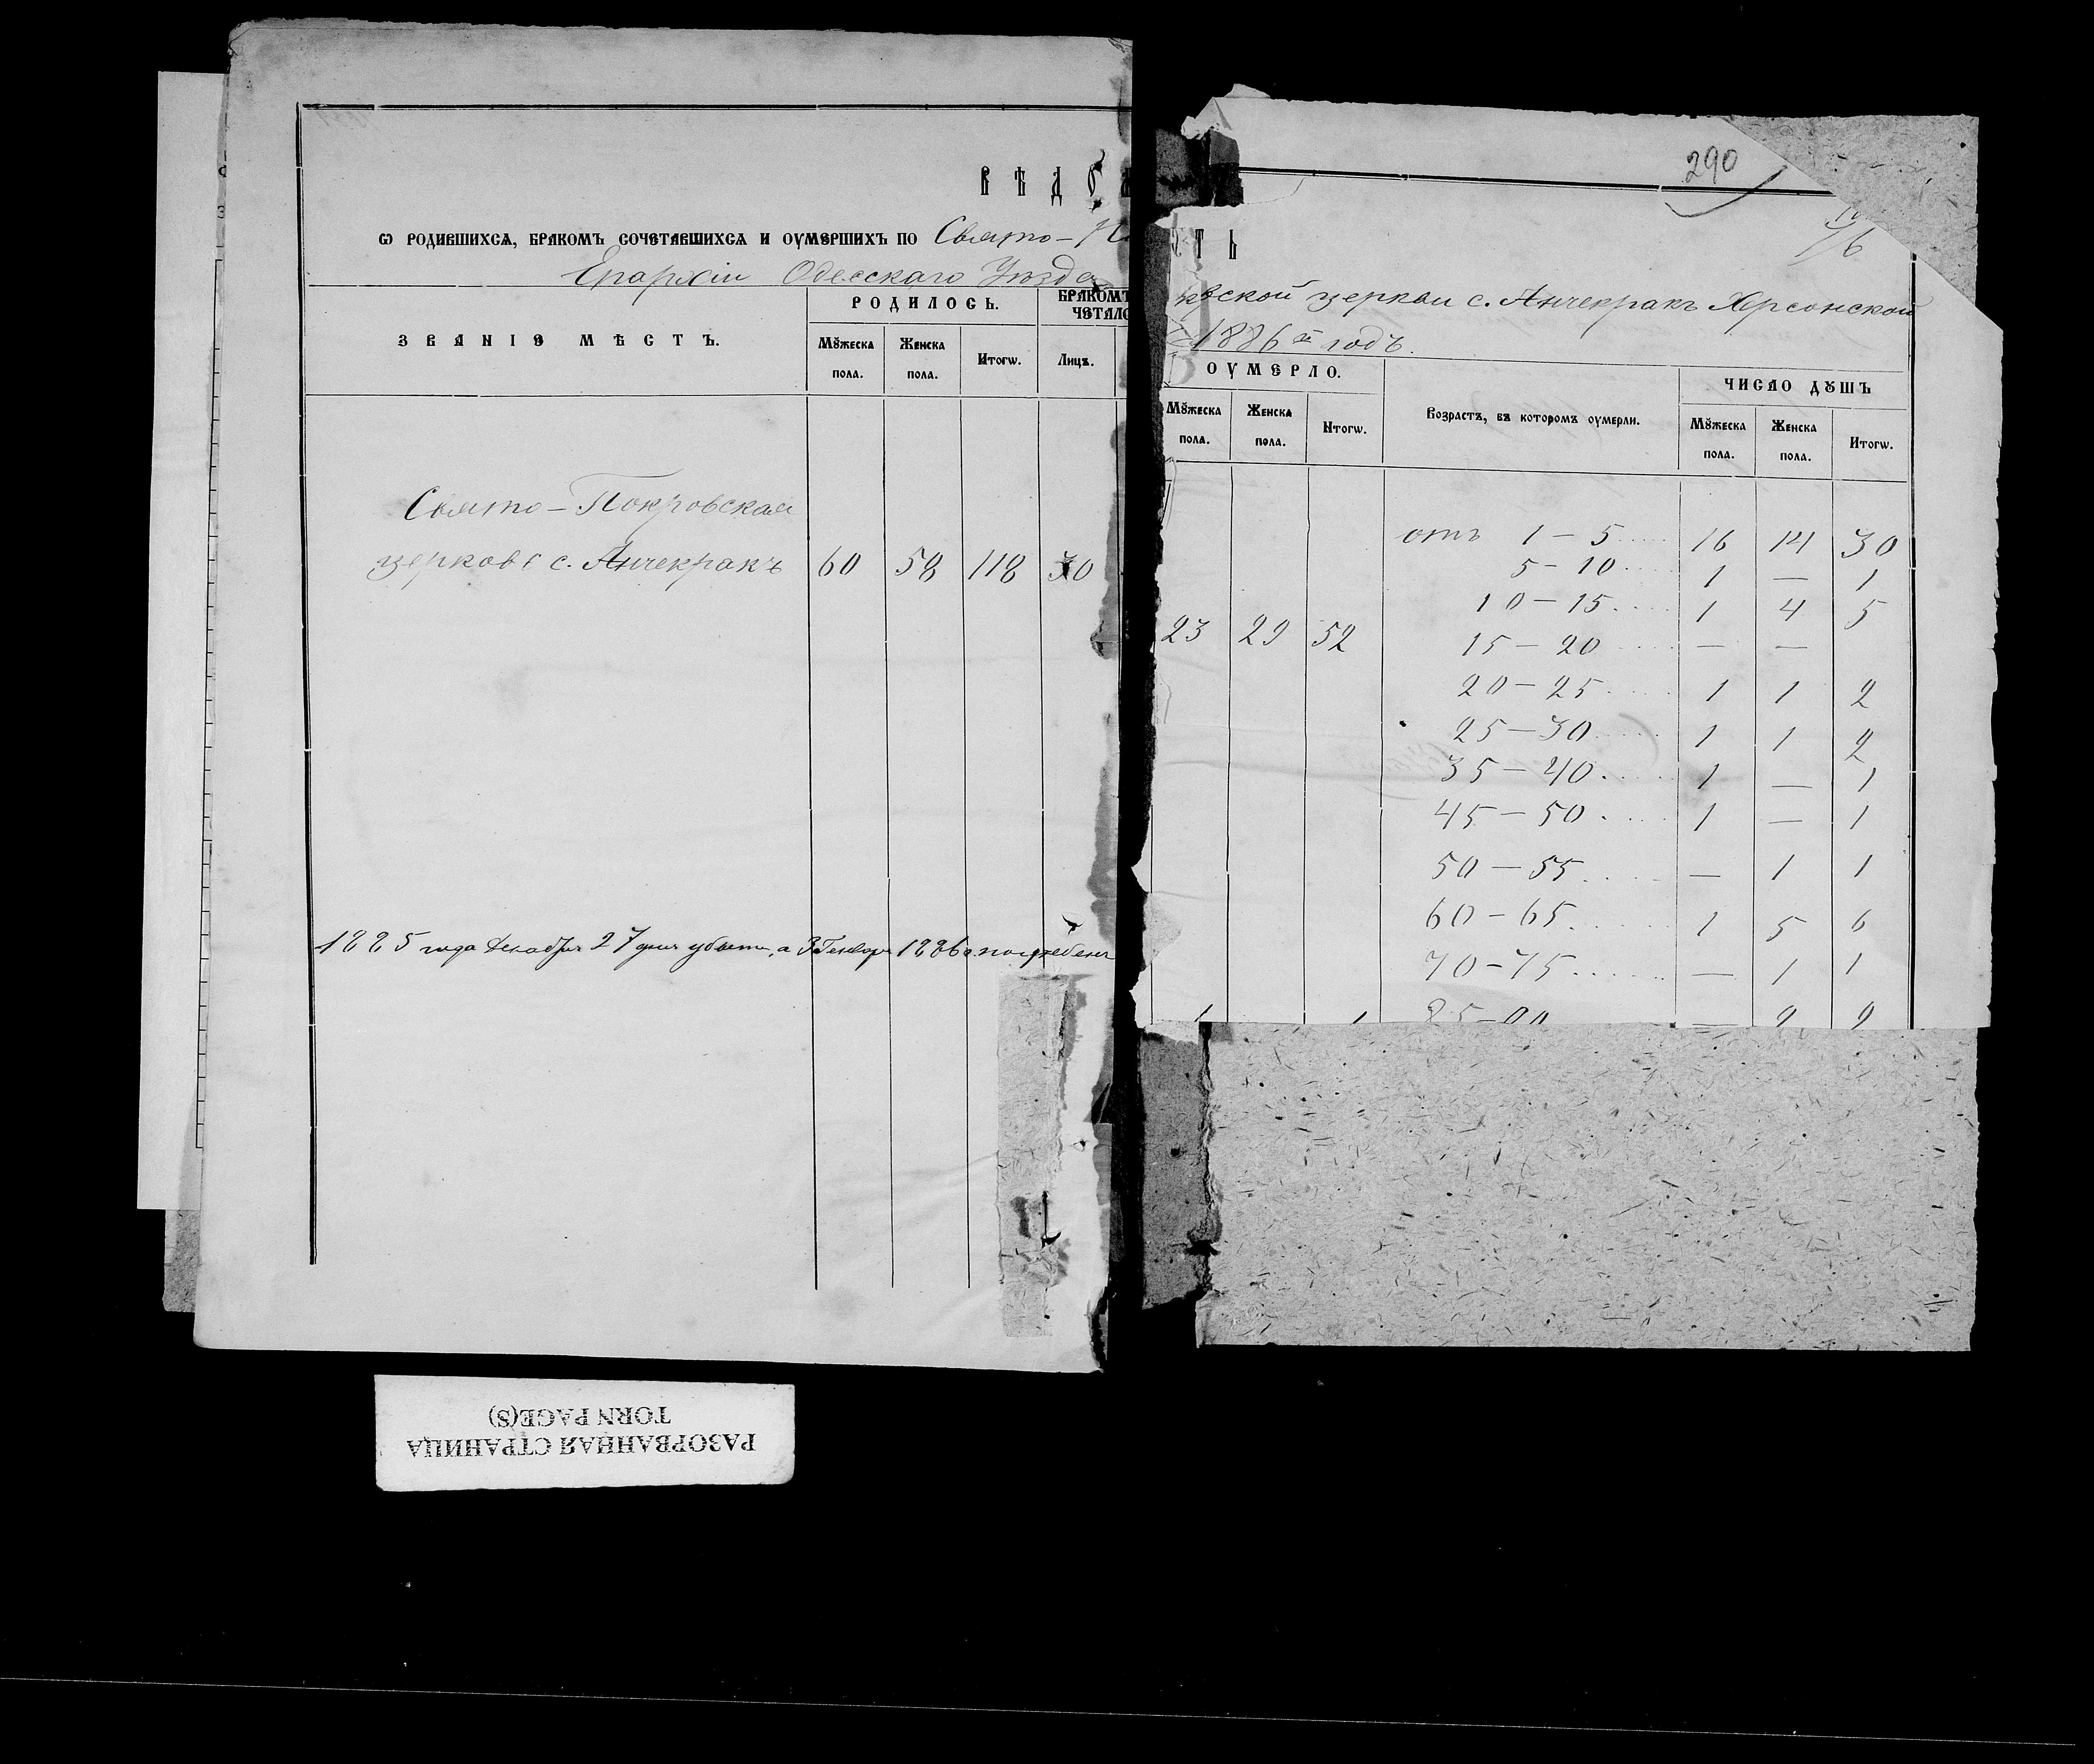 290
ВѢДО
СТЬ
Ѡ РОДИВШИХСѦ, БРАКОМЪ СОЧЕТАВШИХСѦ И ОУМЕРШИХЪ ПО Свято-По
вской церкви с. Анчекракъ Херсонской
Епархіи Одесскаго Уѣзда
1886й годъ.
ЗВАНІЕ МѢСТЪ.
РОДИЛОСЬ.
БРАКОМЪ
ЧЕТАЛО
Мꙋжеска пола.
Женска пола.
Итогѡ.
Лицъ.
ОУМЕРЛО.
Мꙋжеска пола.
Женска пола.
Итогѡ.
Возрастъ, въ которомъ оумерли.
ЧИСЛО ДꙊШЪ
Мꙋжеска пола.
Женска пола.
Итогѡ.
Свято-Покровская
церковь с. Анчекракъ 60 58 118 30
23 29 52
отъ 1 – 5 ..... 16 14 30
5 – 10 .... 1 — 1
10 – 15 .... 1 4 5
15 – 20 .... — —
20 – 25 .... 1 1 2
25 – 30 .... 1 1 2
35 – 40 .... 1 — 1
45 – 50 .... 1 — 1
50 – 55 .... — 1 1
60 – 65 .... 1 5 6
70 – 75 .... — 1 1
85 – 90 — 2 2
1885 года Декабря 27 дня убытъ, а 3 Генваря 1886 г. погребенъ
РАЗОРВАННАЯ СТРАНИЦА
TORN PAGE(S)